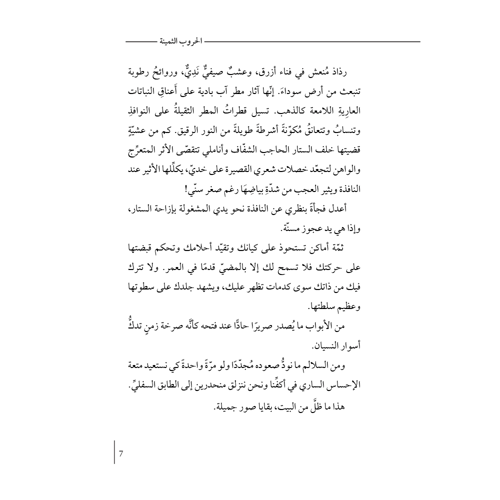 الحروب الثمينة
رذاذ مُنعش في فناء أزرق، وعشبٌ صيفيٌّ نَدِيٌّ، وروائحُ رطوبة
تنبعث من أرض سوداءَ. إنّها آثار مطر آب بادية على أعناقِ النباتات
العارِيةِ اللامعة كالذهب. تسيل قطراتُ المطر الثقيلةُ على النوافذِ
وتنسابُ وتتعانقُ مُكوّنةً أشرطةً طويلةً من النور الرقيق. كم من عشيّةٍ
قضيتها خلف الستار الحاجب الشفّاف وأناملي تتقصّى الأثر المتعرِّج
والواهن لتجعّد خصلات شعري القصيرة على خديّ، يكلّلها الأثير عند
النافذة ويثير العجب من شدّةِ بياضِهَا رغم صغر سنّي!
أعدل فجأةً بنظري عن النافذة نحو يدي المشغولة بإزاحة الستار،
وإذا هي يد عجوز مسنّة.
ثمّة أماكن تستحوذ على كيانك وتقيّد أحلامك وتحكم قبضتها
على حركتك فلا تسمح لك إلا بالمضيّ قدمًا في العمر. ولا تترك
فيك من ذاتك سوى كدمات تظهر عليك، ويشهد جلدك على سطوتها
وعظيم سلطتها.
من الأبواب ما يُصدر صريرًا حادًّا عند فتحه كأنّه صرخة زمنٍ تدكُّ
أسوار النسيان.
ومن السلالم ما نودُّ صعوده مُجدّدًا ولو مرّةً واحدةً كي نستعيد متعة
الإحساس الساري في أكفِّنا ونحن ننزلق منحدرين إلى الطابق السفليِّ.
هذا ما ظلَّ من البيت، بقايا صور جميلة.
7